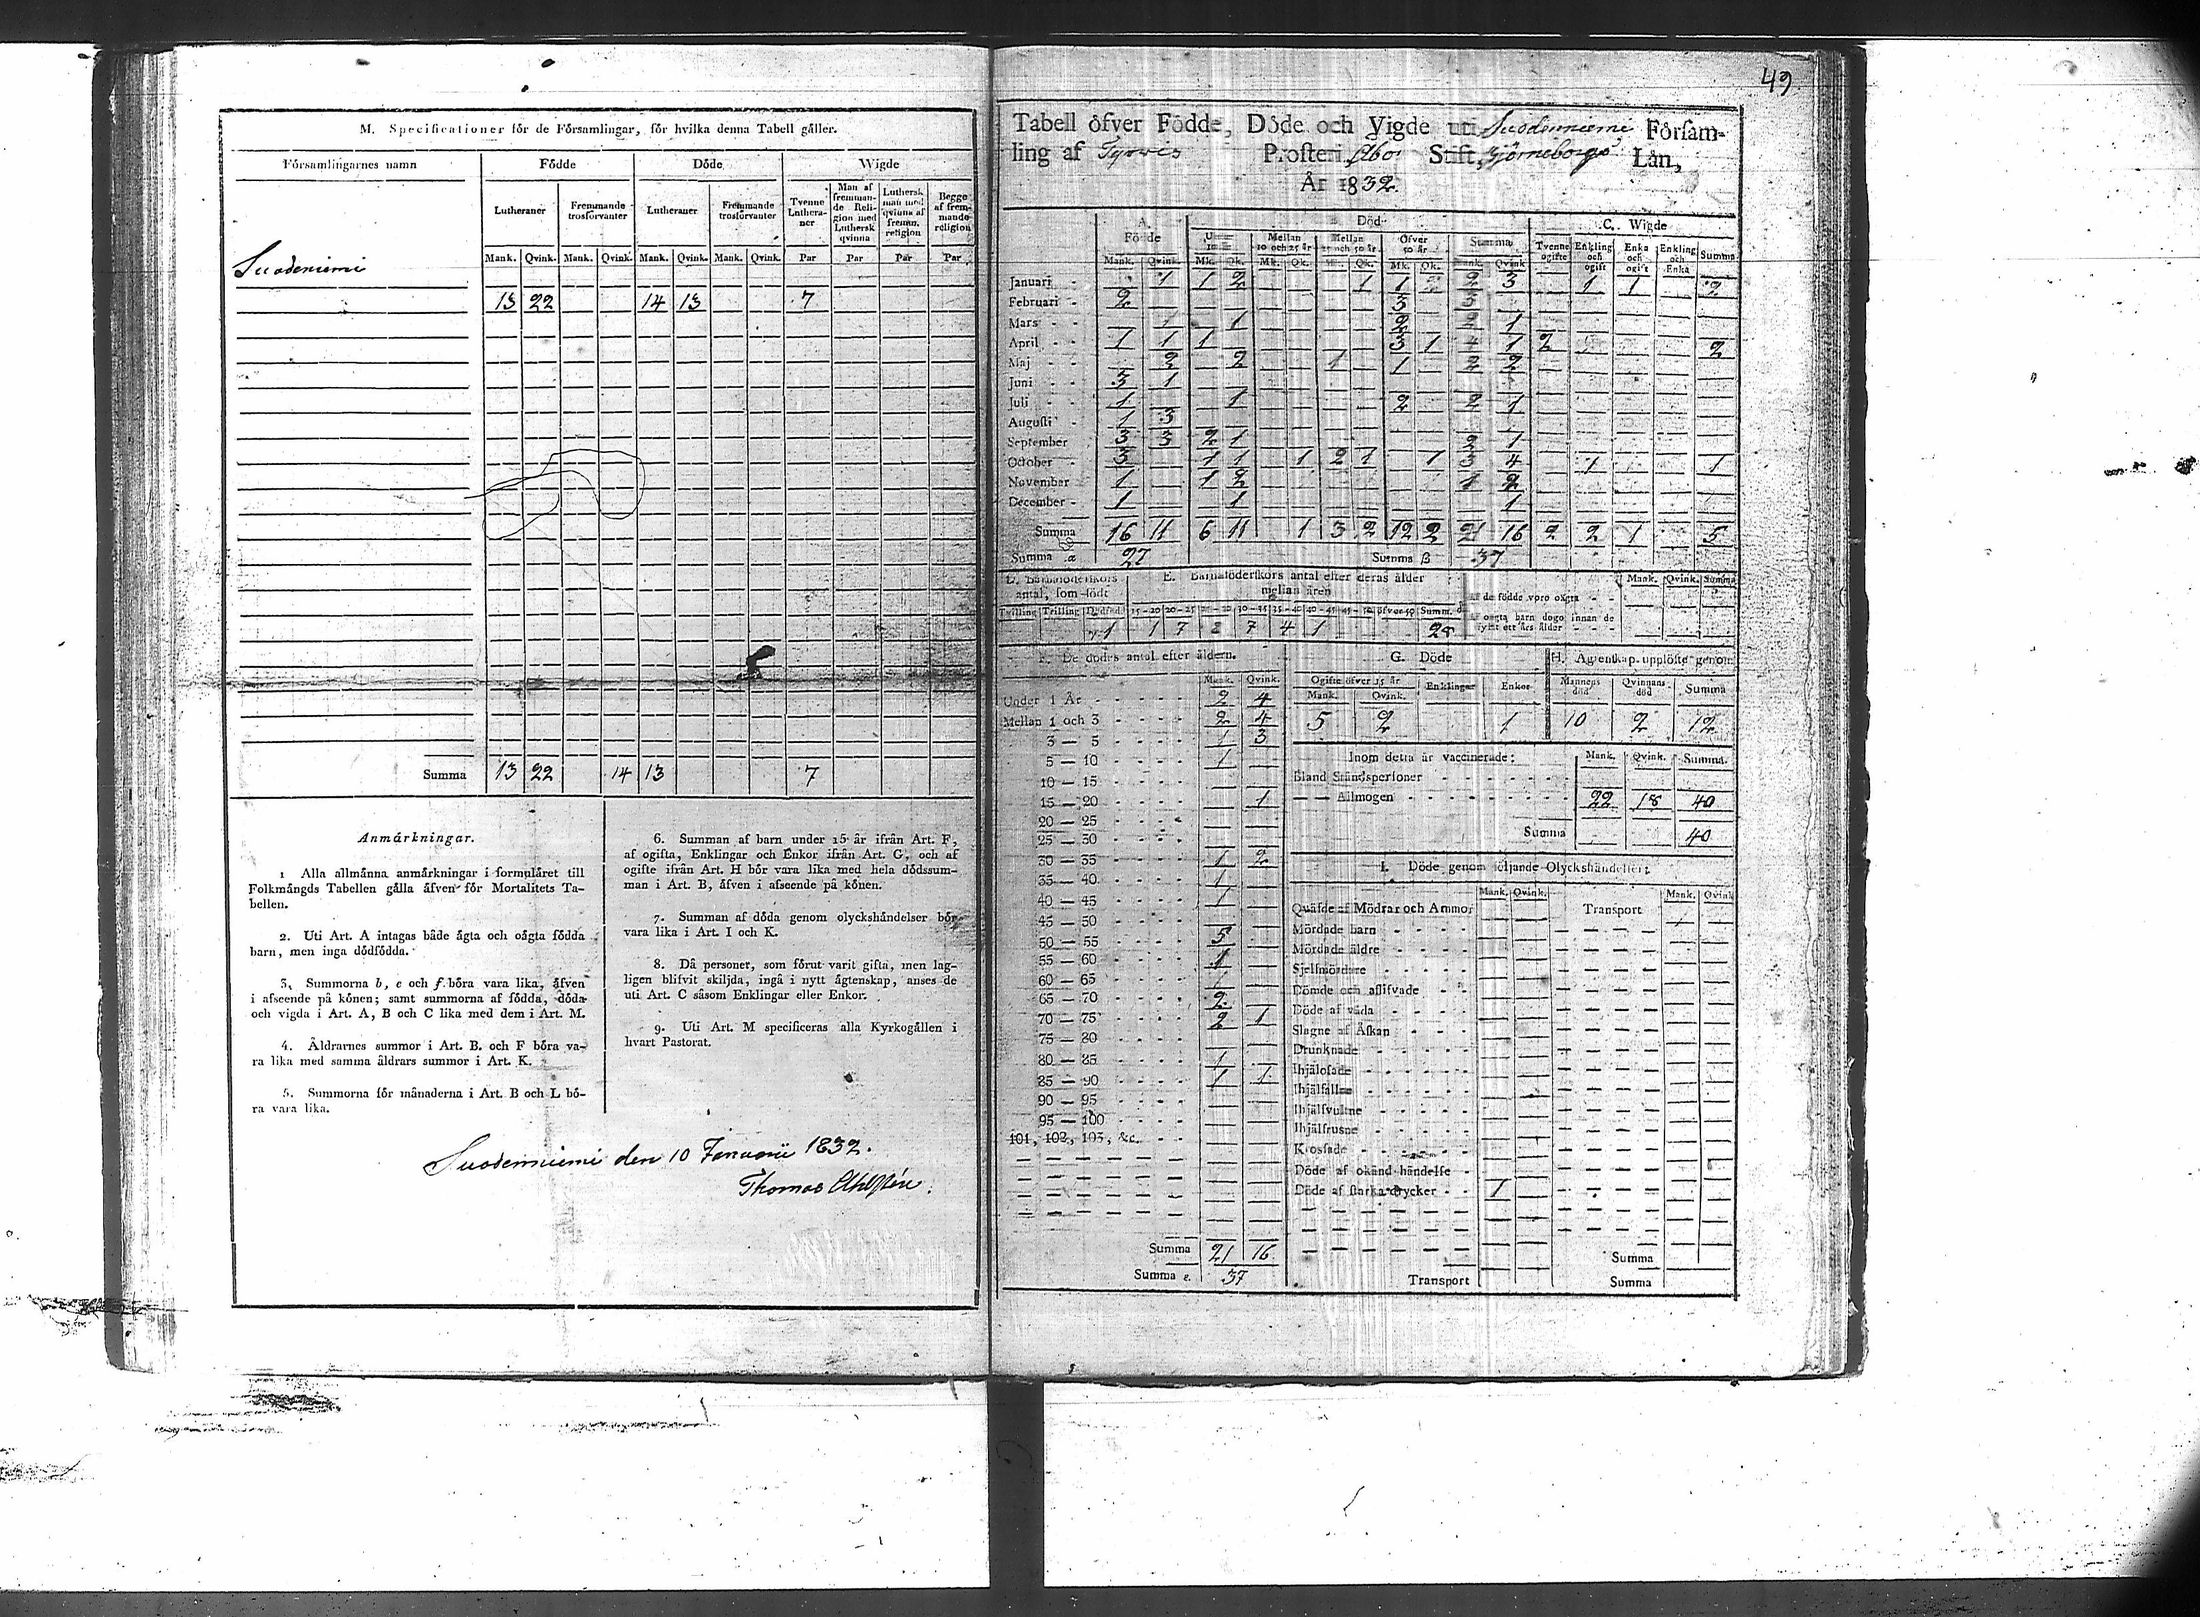 M. Specificationer för de Församlingar, för hvilka denna Tabell gäller.
Församlingarnes namn Födde Döde Wigde
Lutheraner Fremmande trosförvanter Lutheraner Fremmande trosförvanter Tvenne Lutheraner Man af fremmande Religion med Luthersk qvinna Luthersk man med qvinna af fremm. religion Begge af fremmande religion
Mank. Qvink. Mank. Qvink. Mank. Qvink. Mank. Qvink. Par Par Par Par
Suodeniemi
13 22 14 13 7
Summa 13 22 14 13 7
Anmärkningar.
1 Alla allmänna anmärkningar i formuläret till
Folkmängds Tabellen gälla äfven för Mortalitets Ta-
bellen.
2. Uti Art. A intagas både ägta och oägta födda
barn, men inga dödfödda.
3. Summorna b, e och f böra vara lika, äfven
i afseende på könen; samt summorna af födda, döda
och vigda i Art. A, B och C lika med dem i Art. M.
4. Åldrarnes summor i Art. B. och F böra va-
ra lika med samma åldrars summor i Art. K.
5. Summorna för månaderna i Art. B och L bö-
ra vara lika.
6. Summan af barn under 15 år ifrån Art. F,
af ogifta, Enklingar och Enkor ifrån Art. G, och af
ogifte ifrån Art. H bör vara lika med hela dödssum-
man i Art. B, äfven i afseende på könen.
7. Summan af döda genom olyckshändelser bör
vara lika i Art. I och K.
8. Då personer, som förut varit gifta, men lag-
ligen blifvit skiljda, ingå i nytt ägtenskap, anses de
uti Art. C såsom Enklingar eller Enkor.
9. Uti Art. M specificeras alla Kyrkogällen i
hvart Pastorat.
Suodenniemi den 10 Januarii 1832.
Thomas
49
Tabell öfver Födde, Döde och Vigde uti Suodenniemi Försam-
ling af Tyrvis Prosteri Åbo Stift, Björneborgs Län,
År 1832.
A. Födde Död C. Wigde
Mellan 10 och 25 år Mellan 25 och 50 år Öfver 50 år Summa Tvenne ogifte Enkling och ogift Enka och ogift Enkling och Enka Summa
Mank. Qvink. Mk. Qk. Mk. Qk. Mk. Qk. Mk. Qk. Mank. Qvink.
Januari 1 1 2 1 1 2 2 3 1 1 2
Februari 2 3 3
Mars 1 1 2 2 1
April 1 1 1 3 1 4 1 2 2
Maj 2 2 1 1 2 2
Juni 3 1
Juli 1 1 2 2 1
Augusti 1 3
September 3 3 2 1 2 1
October 3 1 1 1 2 1 1 3 4 1 1
November 1 1 2 1 2
December 1 1 1
Summa 16 11 6 11 1 3 2 12 2 21 16 2 2 1 5
Summa a 27 Summa ß 37
D. Barnaföderskors antal, som födt E. Barnaföderskors antal efter deras ålder mellan åren Mank. Qvink. Summa
Tvilling Trilling Dödfödd 15-20 20-25 25-30 30-35 35-40 40-45 45-50 öfver 50 Summ. d
1 1 7 8 7 4 1 28
Af de födde voro oägta
Af oägta barn dogo innan de
fyllt ett års ålder
F. De dödes antal efter åldern. G. Döde H. Ägtenskap upplöste genom
Mank. Qvink. Ogifte öfver 15 år Enklingar Enkor Mannens död Qvinnans död Summa
Mank. Qvink.
5 2 1 10 2 12
Under 1 År 2 4
Mellan 1 och 3 2 4
3 — 5 1 3
5 — 10 1
10 — 15
15 — 20 1
20 — 25
25 — 30
30 — 35 1 2
35 — 40 1
40 — 45 1
45 — 50
50 — 55 5
55 — 60 1
60 — 65
65 — 70 2
70 — 75 2 1
75 — 80
80 — 85 1
85 — 90 1 1
90 — 95
95 — 100
101, 102, 103, &c.
Summa 21 16
Summa e. 37
Inom detta år vaccinerade: Mank. Qvink. Summa
Bland Ståndspersoner
— — Allmogen 22 18 40
Summa 40
I. Döde genom följande Olyckshändelser:
Mank. Qvink. Mank. Qvink
Quäfde af Mödrar och Ammor Transport 1
Mördade barn
Mördade äldre
Sjelfmördare
Dömde och aflifvade
Döde af våda
Slagne af Åskan
Drunknade
Ihjälosade
Ihjälfallne
Ihjälsvultne
Ihjälfrusne
Krossade
Döde af okänd händelse
Döde af starka drycker 1
Summa
Transport Summa